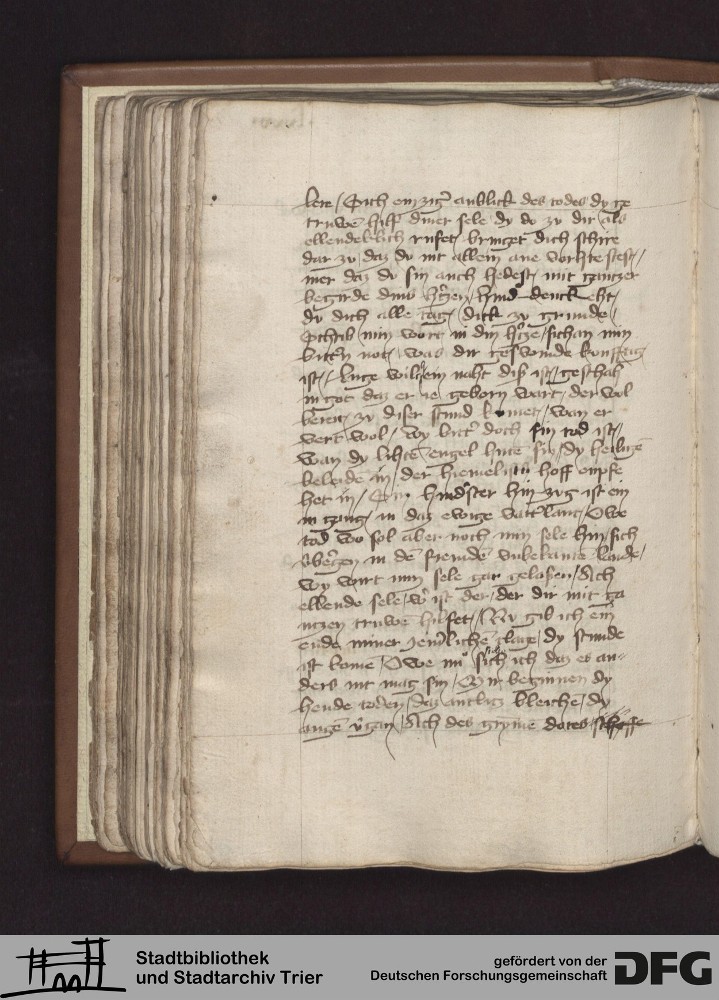 len / Sich ein zigͥ anblick des todes dy ge
truwe hilf diner sele dy do zu dir als
ellendeklich rufet / bringet dich schire
dar zu / daz du nit allein ane vorhte stest /
mer daz du sin auch hedest / mit gantzer
begirde dins hertzen / denck eht /
du dich alle tag / dick zu grunde /
Schrib min wort in din hertze / sich an min
bittern not / was dir geswinde kunftig
ist / Luge wilch ein naht diß ist / geschah
in got daz er ie geborn wart / der wol
bereit zu diser stund kumet / wan er
vert wol / wy bitter doch sin tod ist /
wan dy lihten engel hute sin / dy heiligē
beleide in / der hiemelisch hoff enpfe
het in / Sin hindster hin zug ist ein
in gang / in daz ewige vatterlant / Owe
tod wo sol aber noch min sele hin / sich
in dē fremdē vnbekante lande /
wy wirt min sele gar gelaßen / Ach
ellende sele / wer ist der / der dir mit ga
ntzen truwē hilfet / Nu gib ich ein
ende miner iemͥliche clage / dy stunde
ist kome / Owe nu sich ich daz es an-
ders nit mag sin / Mir beginnen dy
hende toden / daz antlitz bleichē / dy
augē vergan / Ach des gryme dotes
Stadtbibliothek
und Stadtarchiv Trier
gefördert von der
Deutschen Forschungsgemeinschaft
DFG